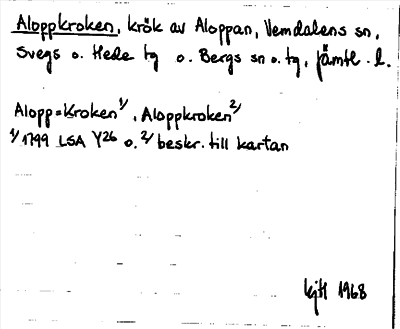 Aloppkroken, krök av Aloppan, Vemdalens sn,
Svegs o. Hede tg o. Bergs sn o. tg, Jämtl. l.
Alopp=Kroken 1/, Aloppkroken 2/
1/ 1799 LSA Y26 o. 2/ beskr. till kartan
1968